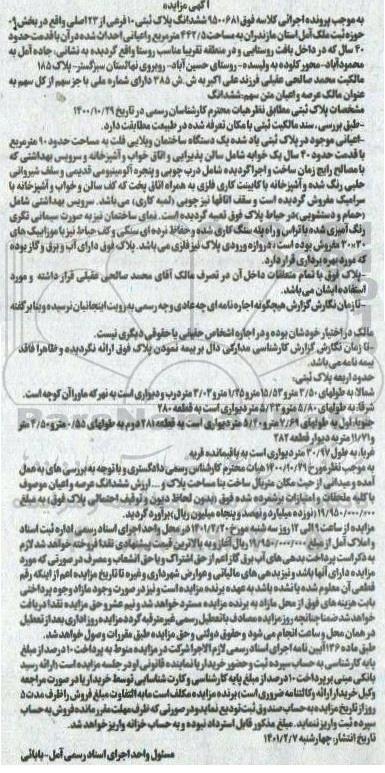 آگهی مزایده
به موجب پرونده اجرائی کلاسه فوق ۹۵۰۰۶۸۱ ششدانگ پلاک ثبتی ۱۰ فرعی از ۲۳ اصلی واقع در بخش ۹
حوزه ثبت ملک آمل استان مازندران به مساحت ۴۴۲/۵ مترمربع واعیانی احداث شده درآن باقدمت حدود
۴۰ سال که در داخل بافت روستایی و در منطقه تقریبا مناسب روستا واقع گردیده به نشانی: جاده آمل به
محمودآباد- محور کلوده به ولیسده- روستای حسین آباد- روبروی نهالستان سبزگستر- پلاک ۱۸۵
مالکیت محمد صالحی عقیلی فرزند علی اکبر به ش.ش ۳۸۵ دارای شماره ملی با جز سهم از کل سهم به
عنوان مالک عرصه واعیان متن سهم: ششدانگ
مشخصات پلاک ثبتی مطابق نظر هیات محترم کارشناسان رسمی در تاریخ ۱۴۰۰/۱۰/۲۹
-طبق بررسی، سند مالکیت ثبتی با مکان تعرفه شده در طبیعت مطابقت دارد.
-اعیانی موجود در پلاک ثبتی یاد شده یک دستگاه ساختمان ویلایی فلت به مساحت حدود ۹۰ مترمربع
با قدمت حدود ۴۰ سال یک خوابه شامل سالن پذیرایی و اتاق خواب و آشپزخانه و سرویس بهداشتی که
با مصالح رایج زمان ساخت واجرا گردیده شامل درب چوبی و پنجره آلومینیومی قدیمی و سقف شیروانی
حلبی رنگ شده و آشپزخانه با کابینت کاری فلزی به همراه اتاق پخت که کف سالن و خواب و آشپزخانه با
سرامیک مفروش گردیده است و سقف اتاقها نیز چوبی (لمبه کاری) می باشد. سرویس بهداشتی شامل
(حمام و دستشویی) در حیاط پلاک فوق تعبیه گردیده است. نمای ساختمان نیز به صورت سیمانی تگری
رنگ آمیزی شده با تراس و راه پله سنگ کاری شده وحفاظ نرده ای سنگی وکف حیاط نیز با موزاییک های
۳۰×۳۰ مفروش بوده است، دروازه ورودی پلاک نیز فلزی می باشد. پلاک فوق دارای آب و برق و گاز بوده
که مورد بهره برداری قرار دارد.
-پلاک فوق با تمام متعلقات داخل آن در تصرف مالک آقای محمد صالحی عقیلی قرار داشته و مورد
استفاده ایشان می باشد.
-تا زمان نگارش گزارش هیچگونه اجاره نامه ای چه عادی وچه رسمی به رویت اینجانبان نرسیده وبنا برگفته
مالک در اختیار خودشان بوده و در اجاره اشخاص حقیقی یا حقوقی دیگری نیست.
-تا زمان نگارش گزارش کارشناسی مدارکی دال بر بیمه نمودن پلاک فوق ارائه نگردیده و ظاهرا فاقد
بیمه نامه می باشد.
حدود اربعه پلاک ثبتی:
شمالا: به طولهای ۳/۵۰ مترو ۱۵/۵۳ مترو ۱/۴۵ مترو ۳/۰۲ متر درب ودیواری است به نهر که ماورا آن کوچه است.
شرقا: به طولهای ۵/۸۰ مترو ۵/۴۳ متر دیواری است به قطعه ۲۸۰
جنوبا: اول به طولهای ۷/۶۹ مترو ۵/۴۰ متر دیواری است به قطعه ۲۸۱ دوم به طولهای ۰/۵۵ مترو ۴/۵۰ متر
و ۱۱/۷۱ متر به دیوار قطعه ۲۸۲
غربا: به طول ۳۰/۹۷ متر دیواری است به باقیمانده قریه.
به موجب نظر مورخ ۱۴۰۰/۱۰/۲۹ هیات محترم کارشناس رسمی دادگستری و با توجه به بررسی های به عمل
آمده و میدانی از حیث مکان متریال ساخت بنا مساحت پلاک و... ارزش ششدانگ عرصه و اعیان موصوف
با کلیه ملحقات و امتیازات برشمرده شده فوق (بدون لحاظ دیون و توقیف احتمالی پلاک فوق) به مبلغ
۱۹/۹۵۰/۰۰۰/۰۰۰ (نوزده میلیارد ونهصد و پنجاه میلیون ریال) برآورد گردید.
مزایده از ساعت ۹ الی ۱۲ روز سه شنبه مورخ ۱۴۰۱/۲/۲۰ در محل واحد اجرای اسناد رسمی اداره ثبت اسناد
و املاک آمل از مبلغ ۱۹/۹۵۰/۰۰۰/۰۰۰ ریال آغاز و به بالاترین قیمت پیشنهادی نقدا فروخته خواهد شد لازم
به ذکر است پرداخت بدهی های آب برق گاز اعم از حق اشتراک و یا حق انشعاب و مصرف در صورتی که مورد
مزایده دارای آنها باشد و نیز بدهی های مالیاتی و عوارض شهرداری و غیره تا تاریخ مزایده اعم از اینکه رقم
قطعی آن معلوم شده یا نشده باشد به عهده برنده مزایده است و نیز در صورت وجود مازاد وجوه پرداختی
بابت هزینه های فوق از محل مازاد به برنده مزایده مسترد خواهد شد و نیم عشر و حق مزایده نقدا دریافت
خواهد شد ضمنا چنانچه روز مزایده مصادف با تعطیل رسمی غیرمترقبه گردد مزایده روز اداری بعد از تعطیل
در همان محل و ساعت انجام می شود و حقوق دولتی و حق مزایده طبق مقررات وصول خواهد شد.
طبق ماده ۱۳۶ آیین نامه اجرای اسناد رسمی لازم الاجرا شرکت در مزایده منوط به پرداخت ۱۰ درصد از مبلغ
پایه کارشناسی به حساب سپرده ثبت و حضور خریدار یا نماینده قانونی او در جلسه مزایده است ارائه رسید
بانکی مبنی بر پرداخت ۱۰ درصد از مبلغ پایه کارشناسی و کارت شناسایی توسط خریدار یا در صورت مراجعه
وکیل خریدار ارائه وکالتنامه ضروری است؛ برنده مزایده مکلف است مابه التفاوت مبلغ فروش را ظرف مدت ۵
روز از تاریخ مزایده به حساب صندوق ثبت تودیع نماید و در صورتی که ظرف مهلت مقرر مانده فروش به حساب
سپرده ثبت واریز ننماید. مبلغ مذکور قابل استرداد نبوده و به حساب خزانه واریز خواهد شد.
تاریخ انتشار: چهارشنبه ۱۴۰۱/۲/۷
مسئول واحد اجرای اسناد رسمی آمل - بابائی